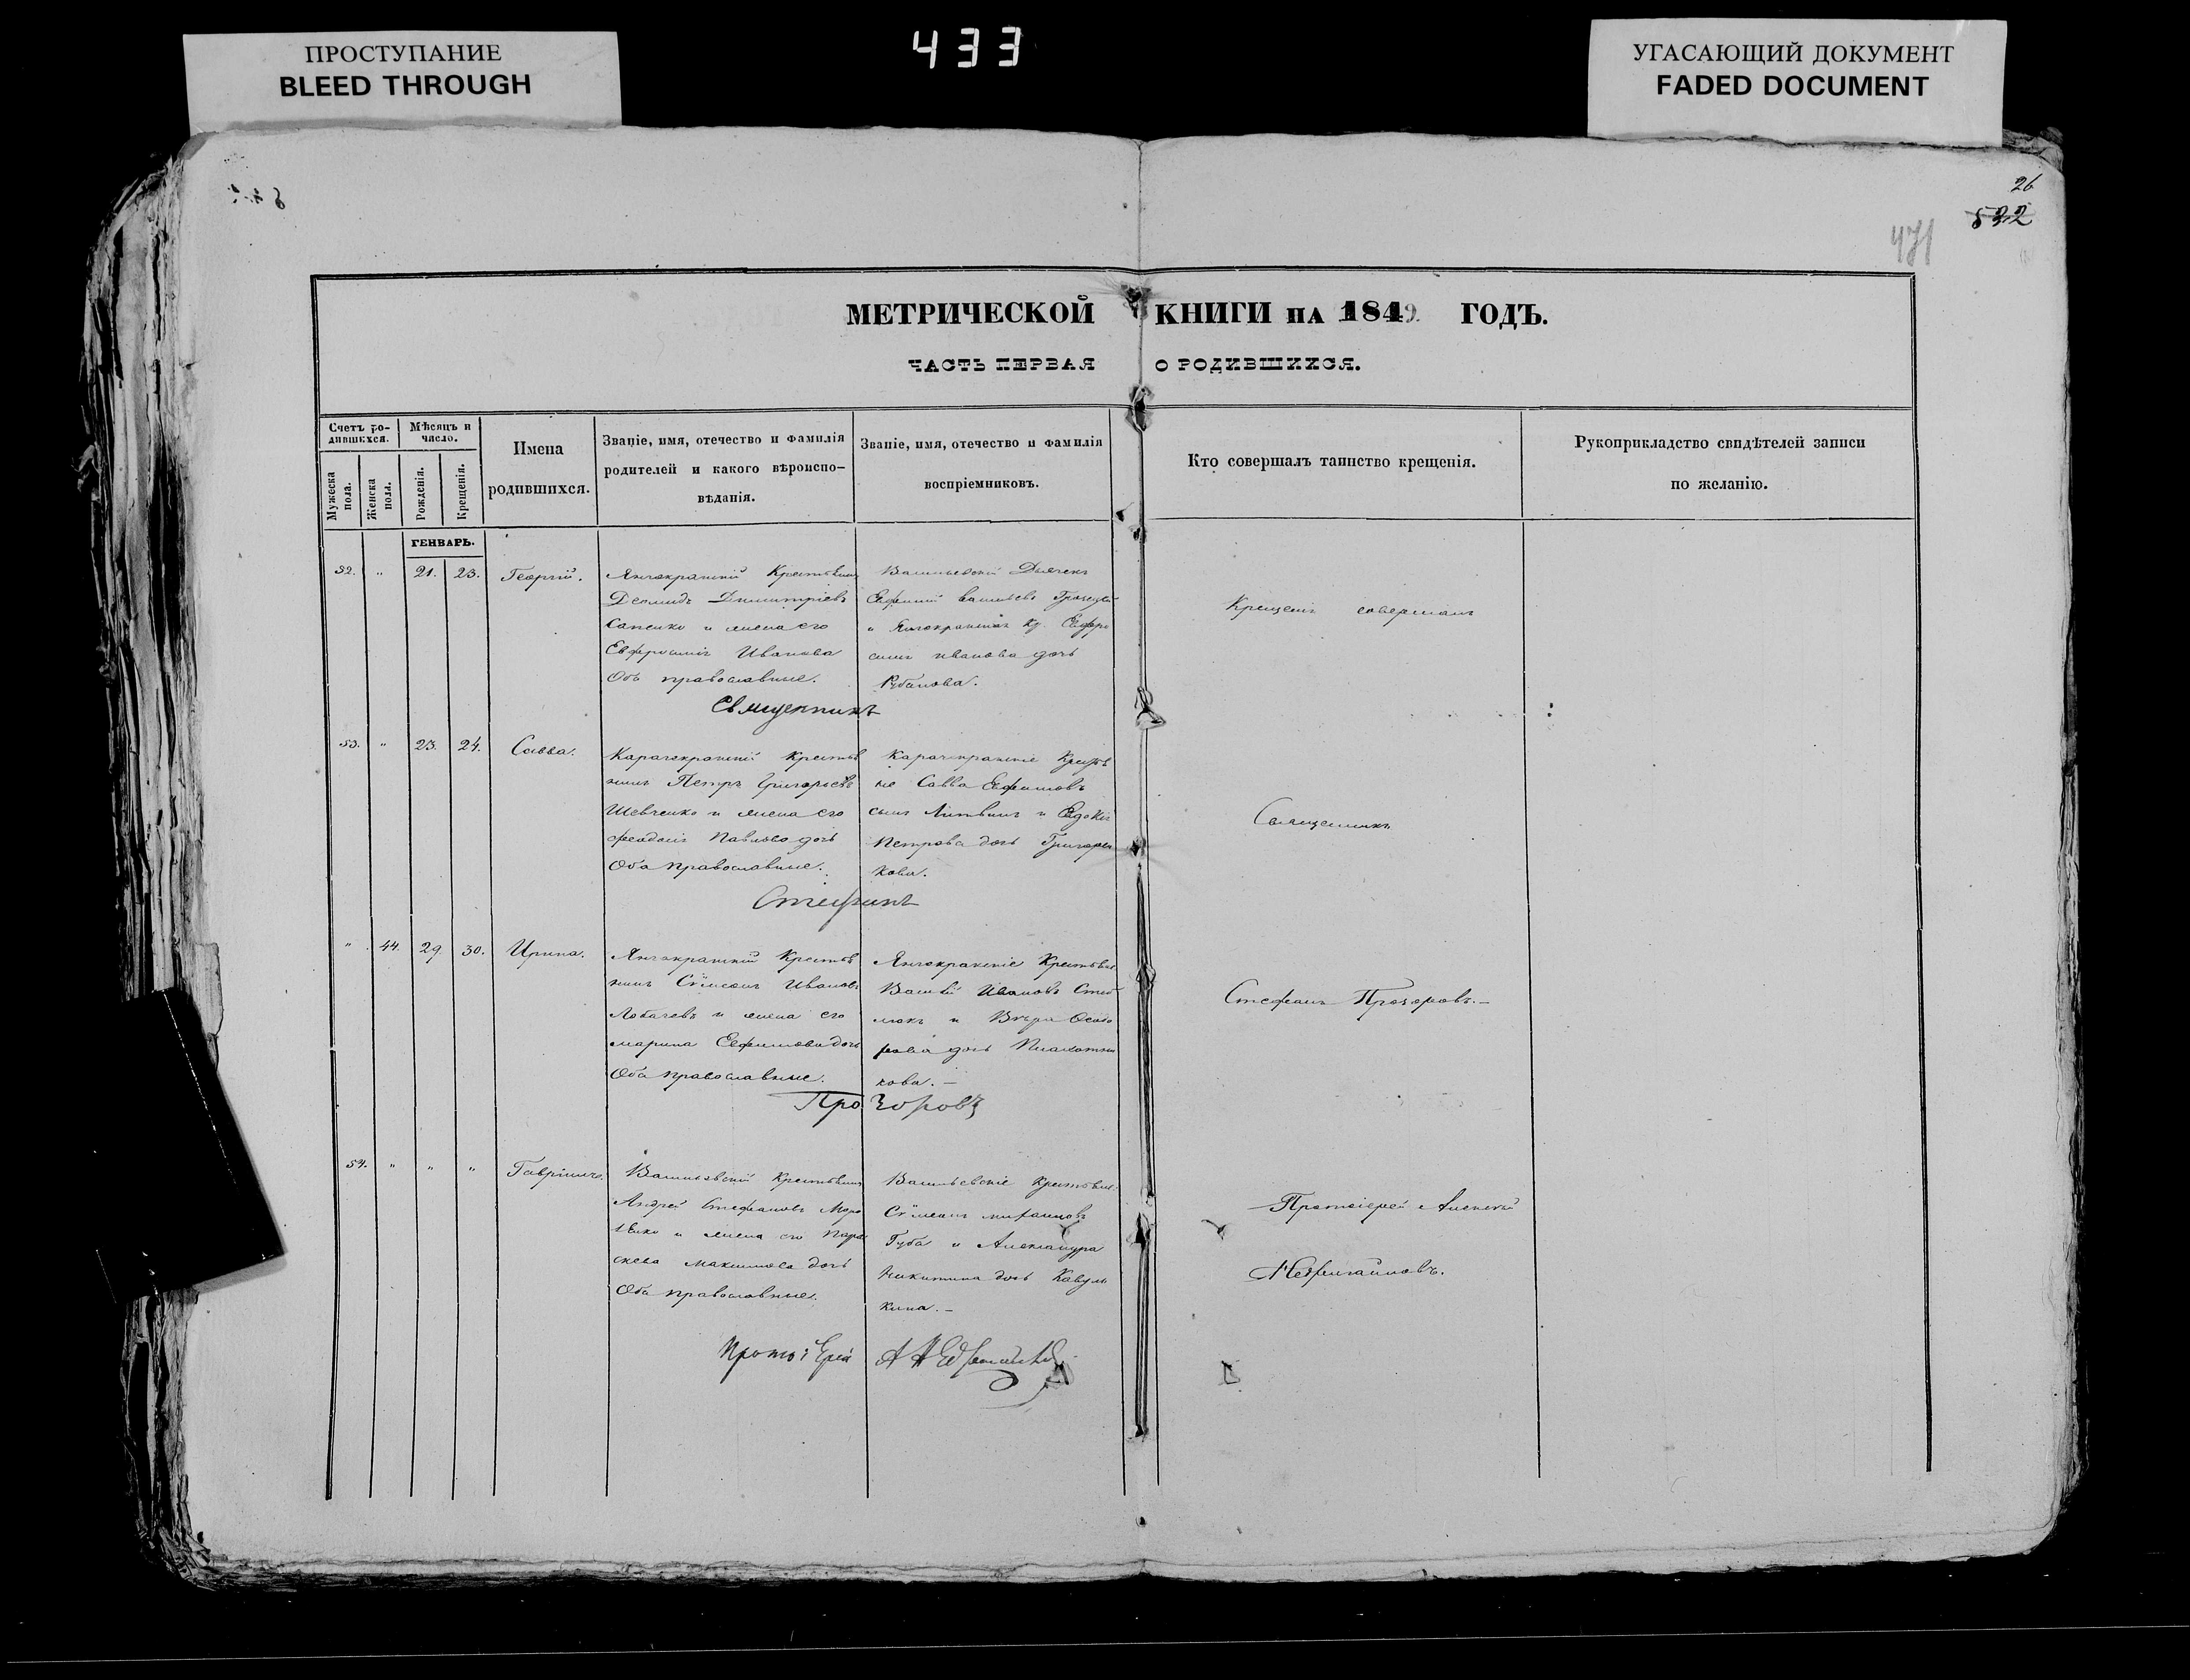 ПРОСТУПАНИЕ
BLEED THROUGH
433
УГАСАЮЩИЙ ДОКУМЕНТ
FADED DOCUMENT
26
532
471
МЕТРИЧЕСКОЙ КНИГИ НА 1849 ГОДЪ.
ЧАСТЬ ПЕРВАЯ О РОДИВШИХСЯ.
Счетъ ро-
дившихся.
Мужеска пола.
Женска пола.
Мѣсяцъ и
число.
Рожденія.
Крещенія.
Имена
родившихся.
Званіе, имя, отечество и фамилія
родителей и какого вѣроиспо-
вѣданія.
Званіе, имя, отечество и фамилія
воспріемниковъ.
Кто совершалъ таинство крещенія.
Рукоприкладство свидѣтелей записи
по желанію.
ГЕНВАРЬ.
52. " 21. 23. Георгій.
Янчокракскій Крестьянинъ
Демидъ Димитріевъ
Сапенко и жена его
Евфросинія Иванова
Оба православные.
Васильевскій Дьячекъ
Евфимій Васильевъ
и Янчокракская Кр. Евфро
синія Иванова дочь
Рубанова.
Крещеніе совершалъ
Священникъ
53. " 23. 24. Савва.
Карачекракскій Крестья
нинъ Петръ Григорьевъ
Шевченко и жена его
Феодосія Павлова дочь
Оба православные.
Карачекракскіе Крестья
не Савва Евфимовъ
сынъ Литвинъ и Евдокія
Петрова дочь Григорен
кова.
Священникъ
Стефанъ
" 44. 29. 30. Ирина.
Янчокракскій Крестья
нинъ Сѵмеонъ Ивановъ
Лобачевъ и жена его
Марина Евфимова дочь
Оба православные.
Янчокракскіе Крестьяне
Василій Ивановъ
и Вѣра
дочь
кова.-
Стефанъ Прозоровъ.-
Прозоровъ
54. " " " Гавріилъ.
Васильевскій Крестьянинъ
Андрей Стефановъ
и жена его Пара
скева Максимова дочь
Оба православные.
Васильевскіе Крестьяне
Сѵмеонъ
Губа и Александра
Никитина дочь
кина.-
Протоіерей Алексій
Протоіерей